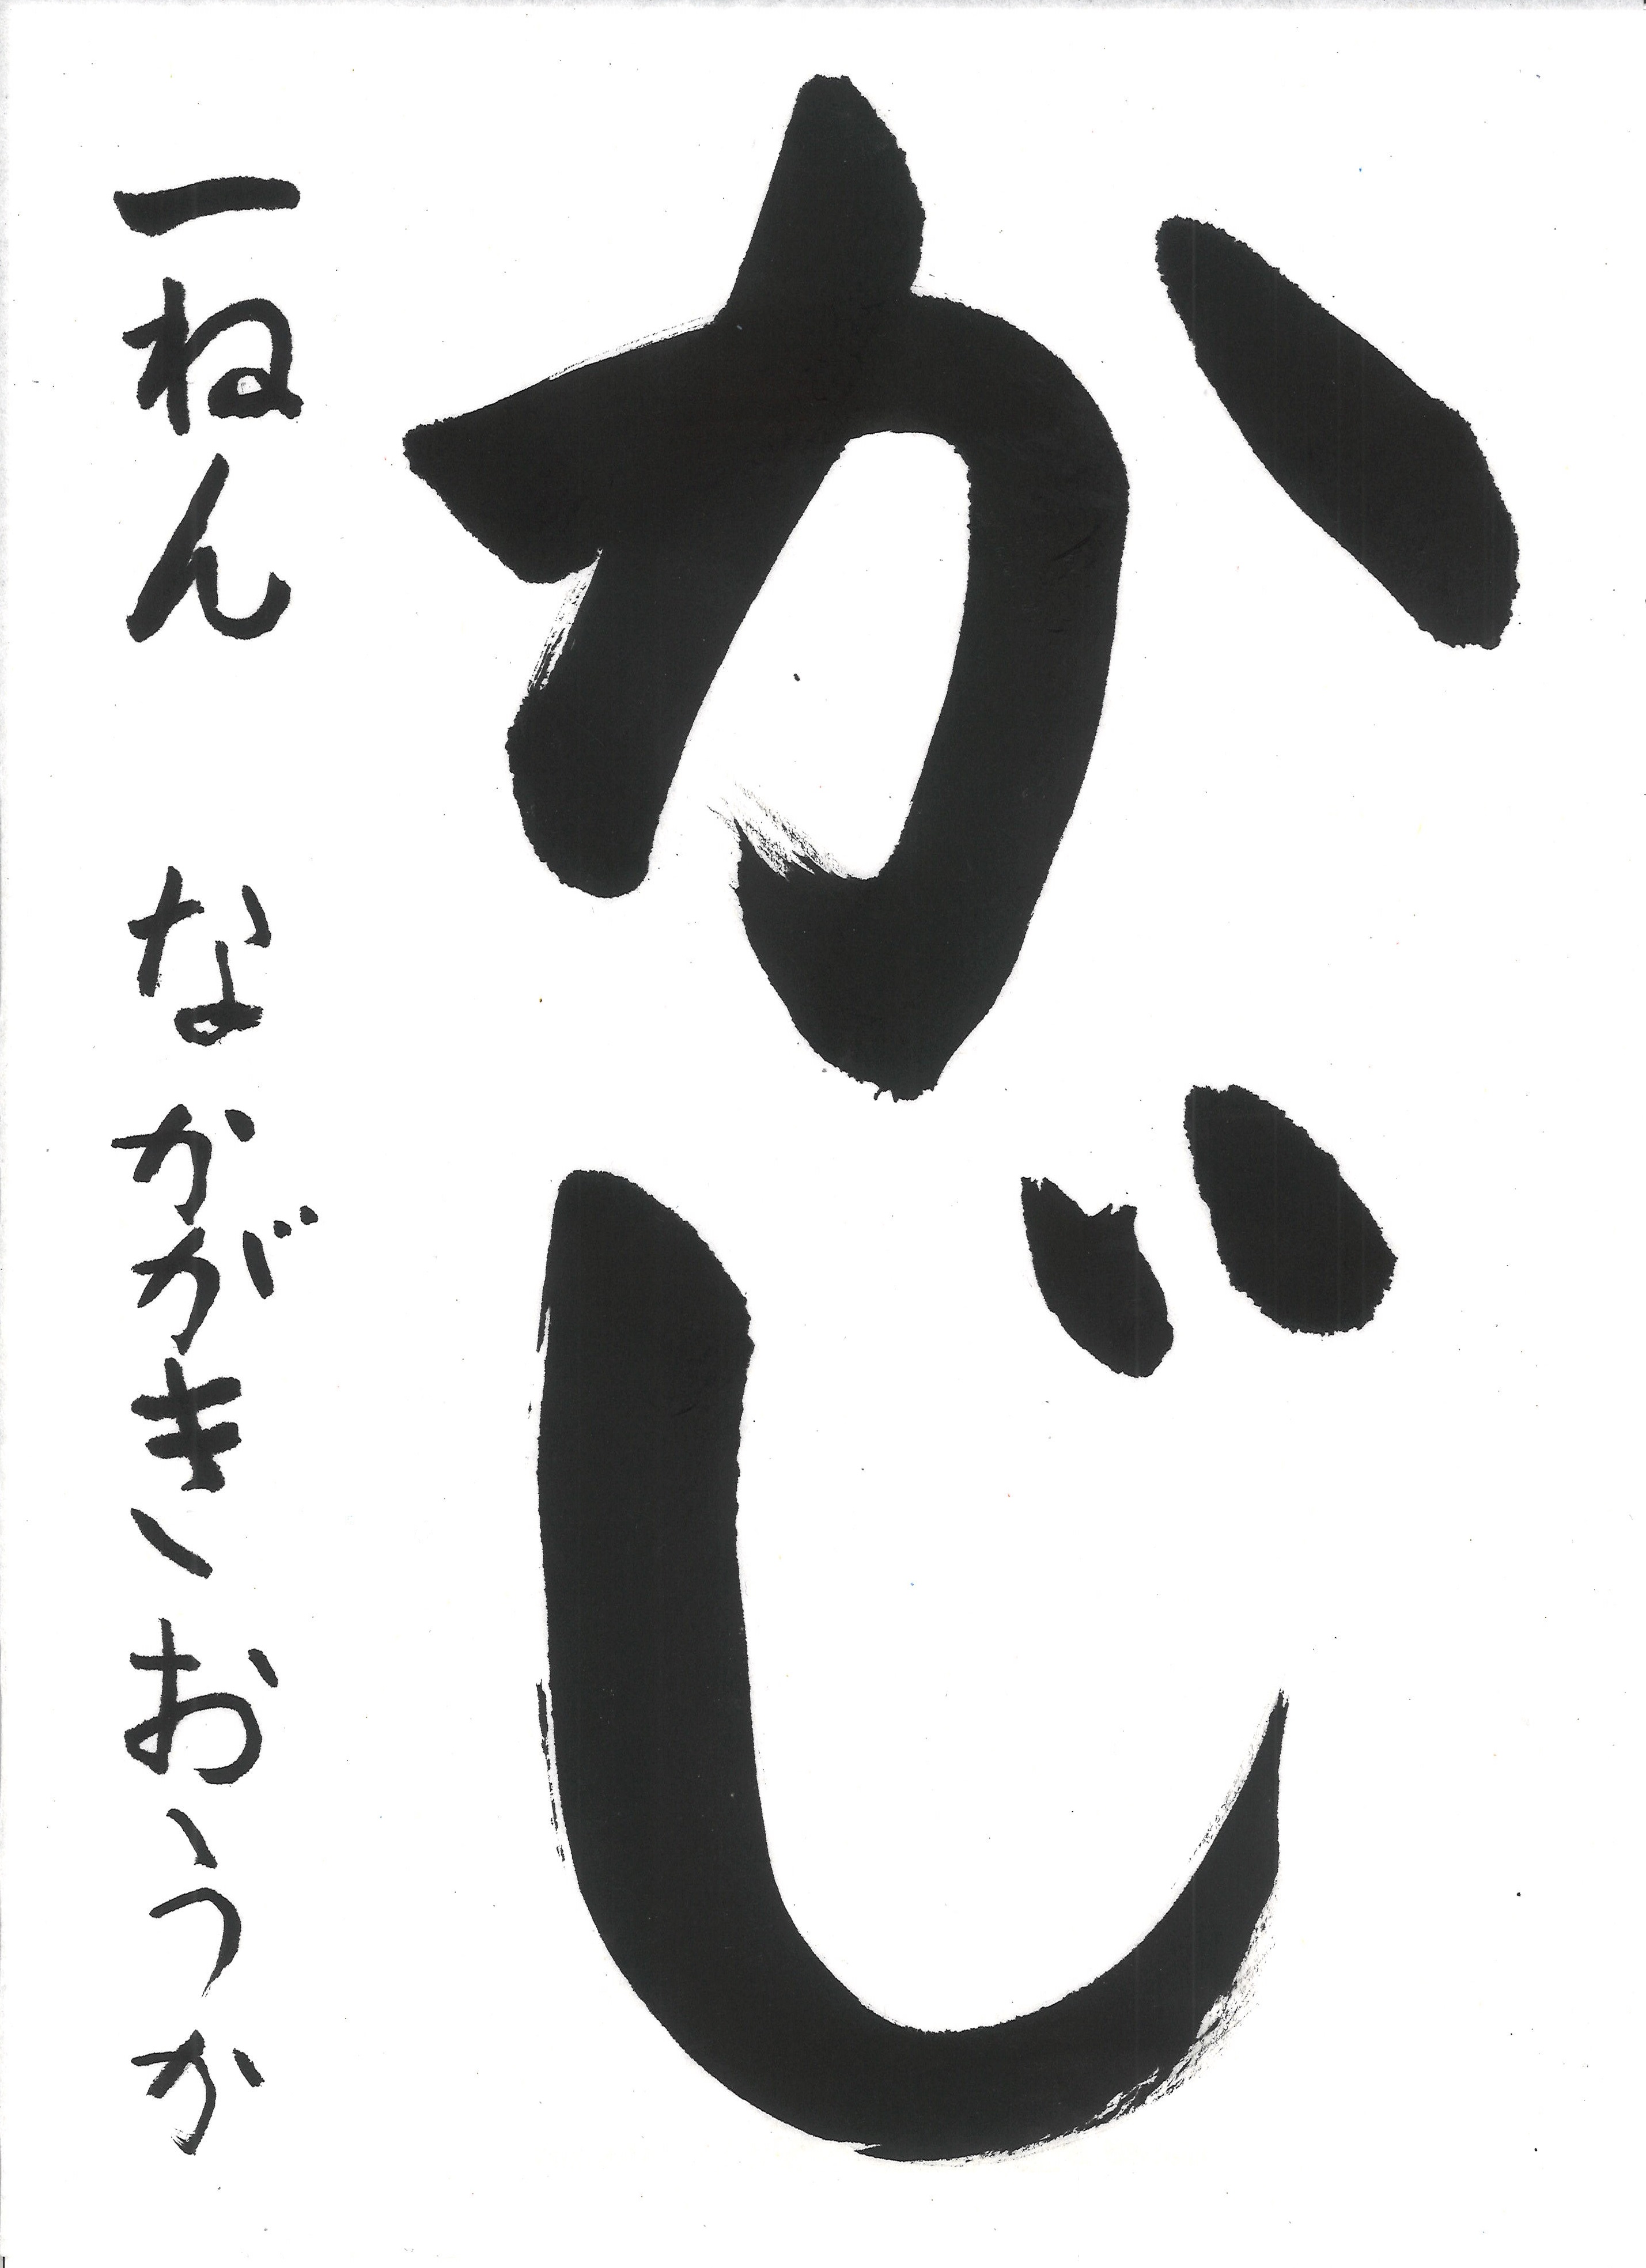 かじ
一ねん なかがきおうか